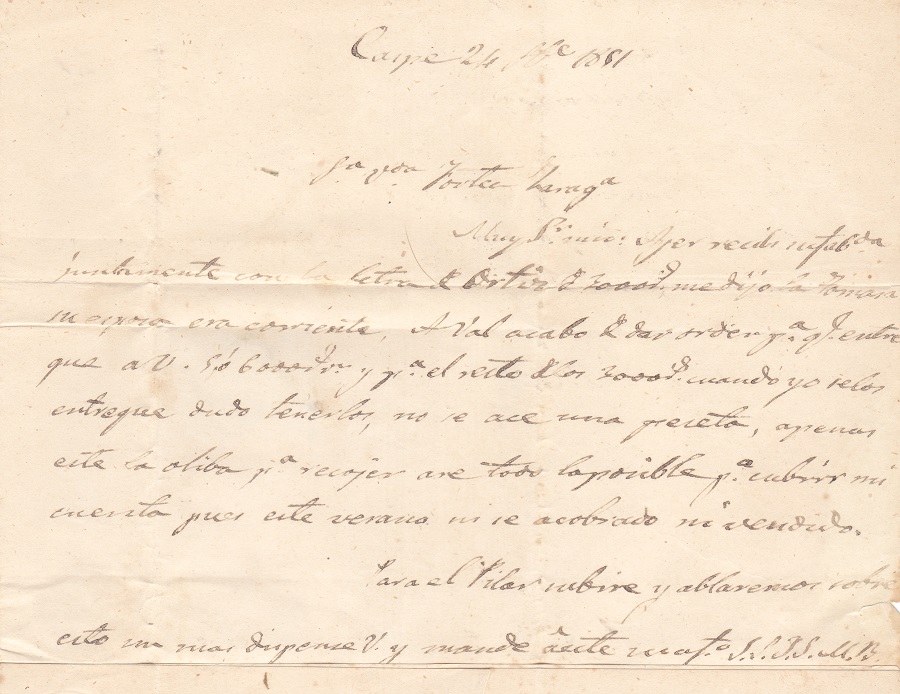 Caspe 24 7bre 1881
Sra Vda Fortea Zaraga
Muy Sr mio: Ayer recibi su fabda
juntamente con la letra de Ortiz de 3000rs me dijo la tomara
era corriente, A Val acabo de dar orden pa qe entre
que a V. 5 ó 6000 rrn y pa el resto de los 3000rs cuando yo se los
entregue dudo tenerlos, no se ace una peseta, apenas
este la oliba pa recojer are todo lo posible pa cubrir mi
cuenta pues este verano ni se a cobrado ni vendido.
Para el Pilar subire y ablaremos sobre
esto sin mas dispense V. y mande á este su afo S.S.Q.S.M.B.